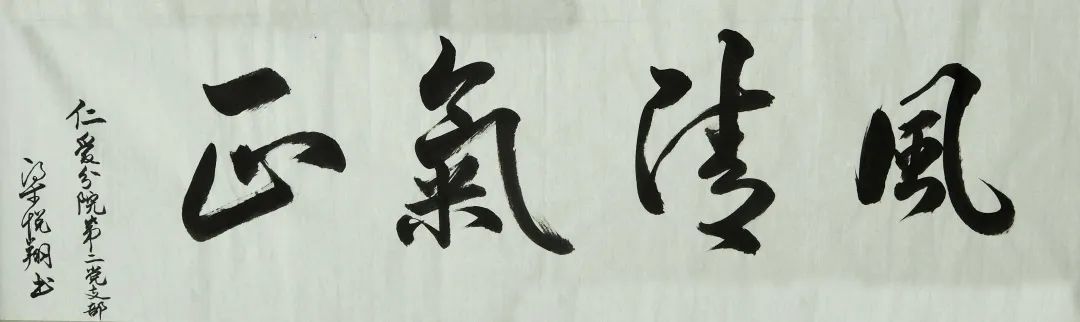 風清氣正
仁爱分院第二党支部
梁悦翔书